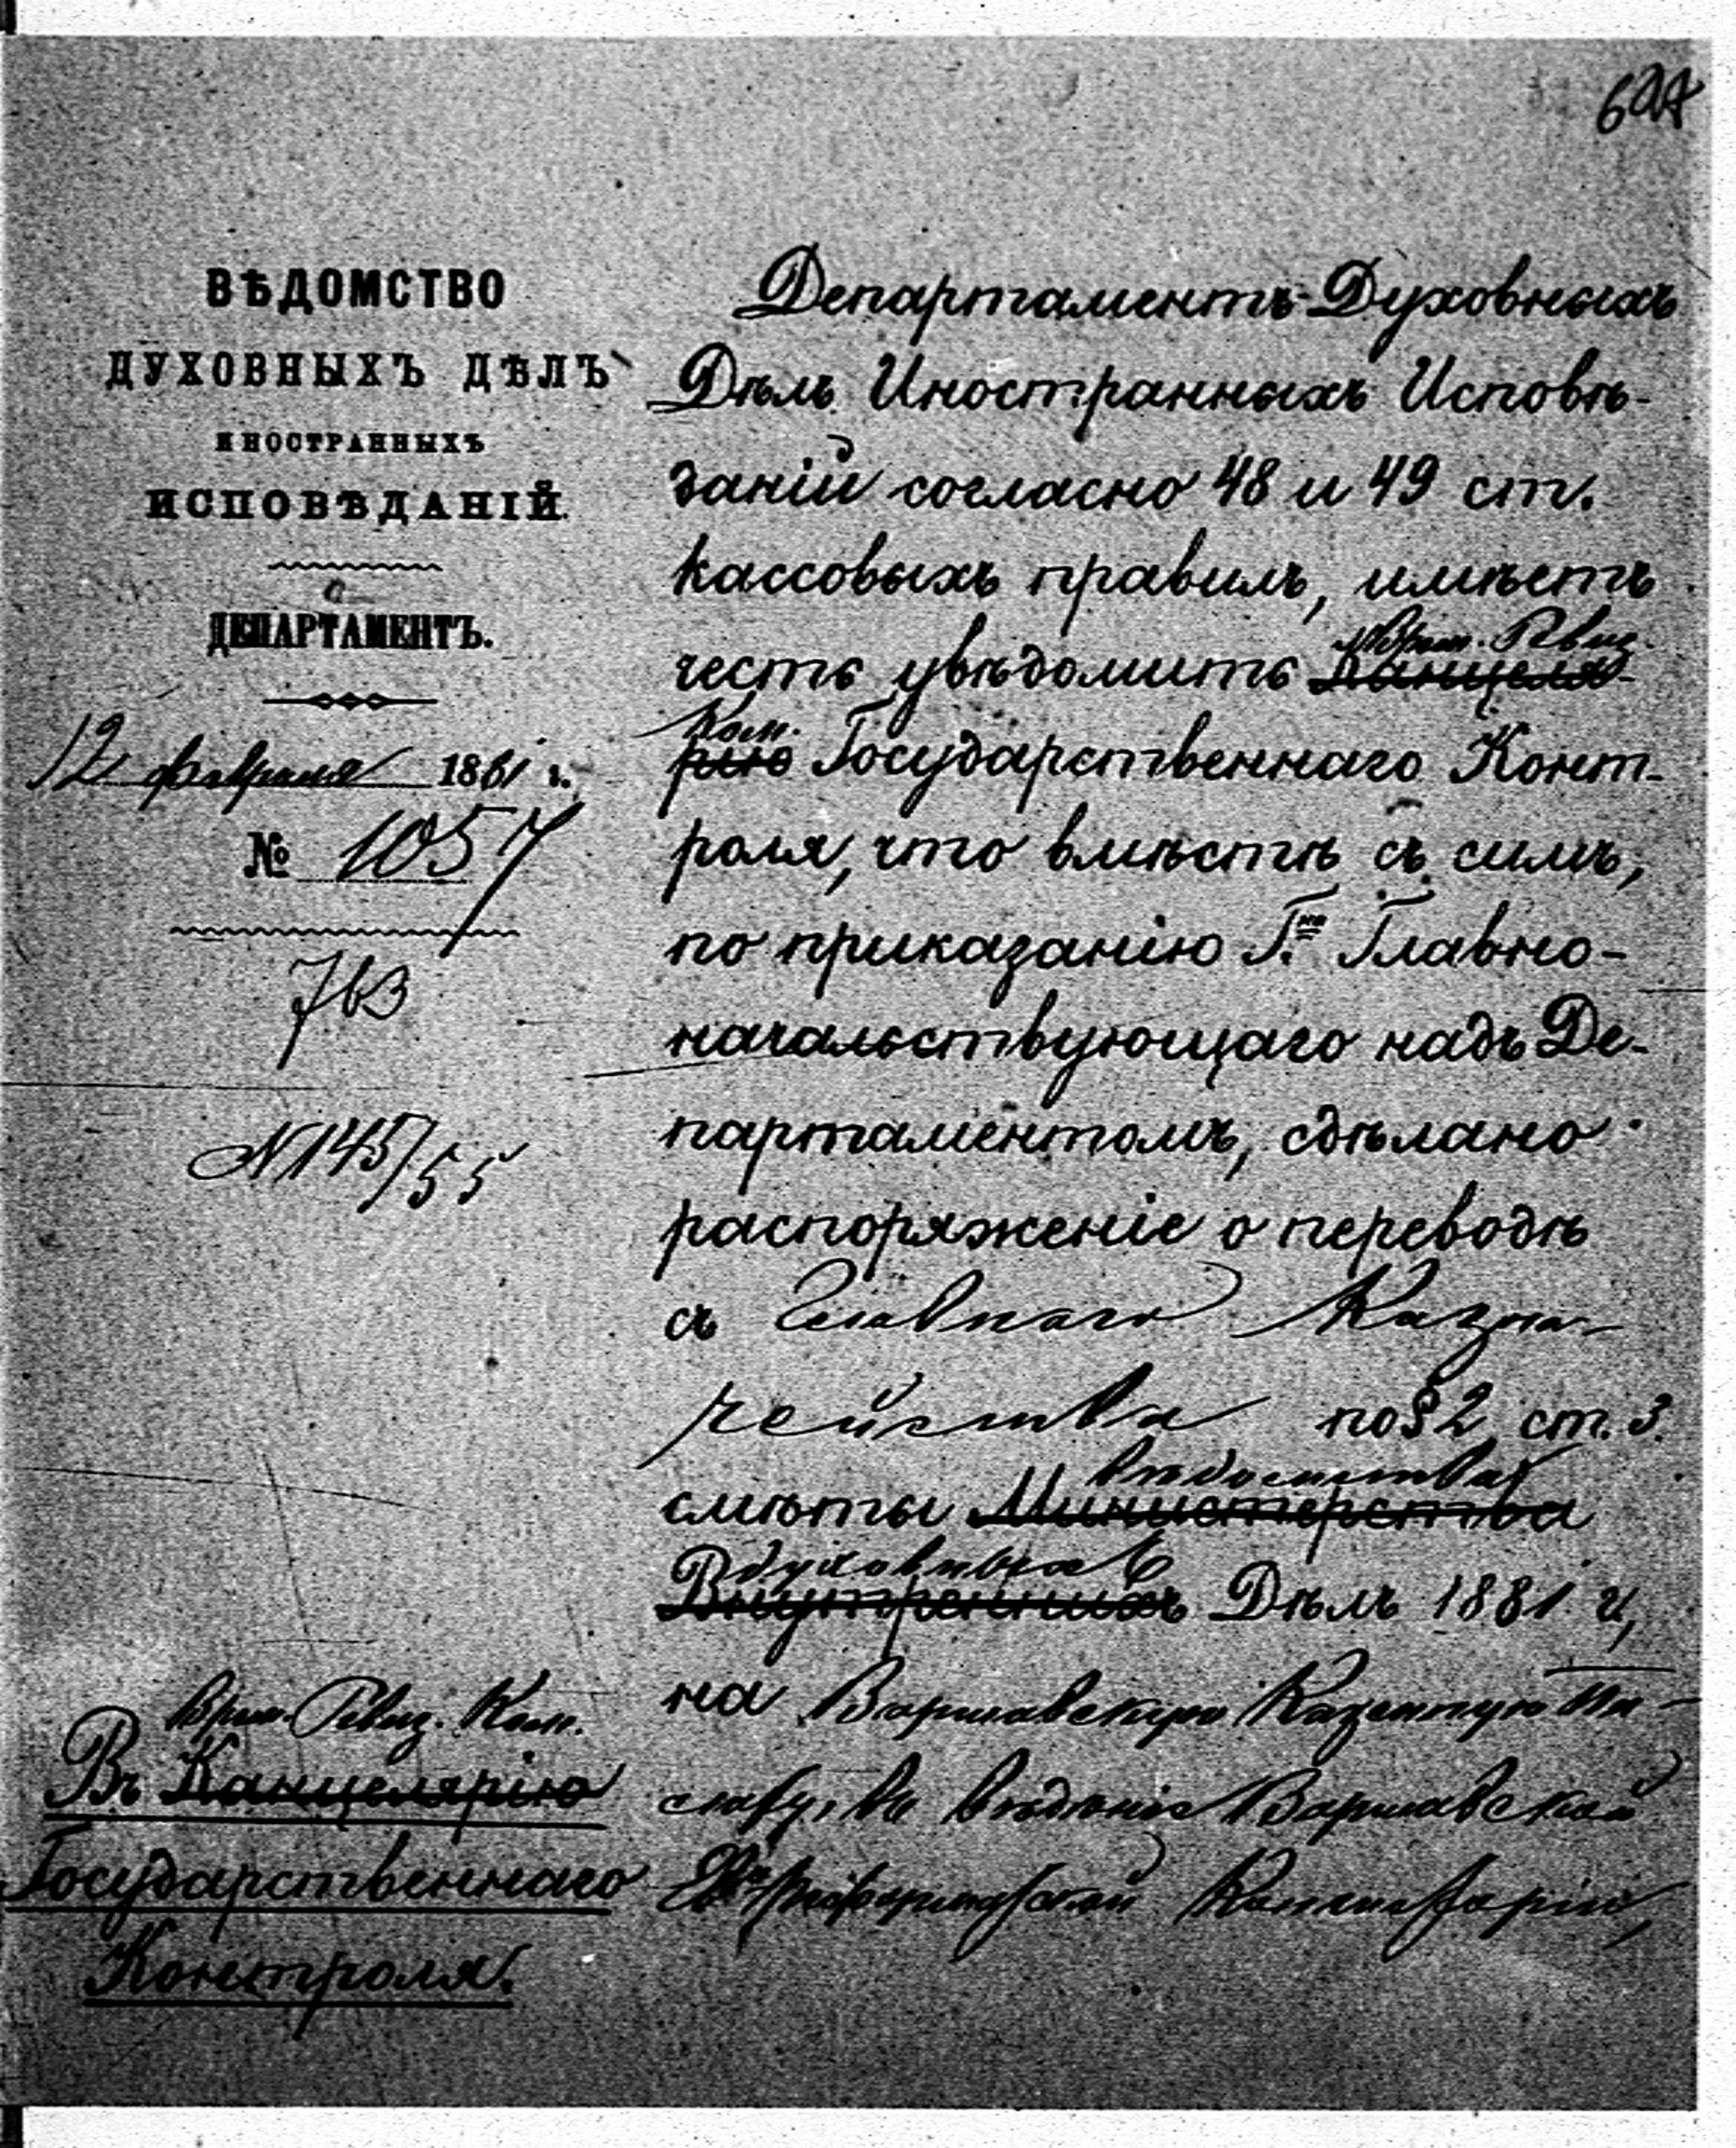 ВѢДОМСТВО
ДУХОВНЫХЪ ДѢЛЪ
ИНОСТРАННЫХЪ
ИСПОВѢДАНІЙ.
ДЕПАРТАМЕНТЪ.
12 февраля 1881 г.
№ 1057
763
N 145/55
Врем. Ревиз. Ком.
Въ Канцелярію
Государственнаго
Контроля.
Департаментъ Духовныхъ
Дѣлъ Иностранныхъ Исповѣ-
даній согласно 48 и 49 ст.
кассовыхъ правилъ, имѣетъ
Врем. Ревиз.
честь увѣдомить Канцеля-
Ком.
рію Государственнаго Конт-
роля, что вмѣстѣ съ симъ,
по приказанію Г.на Главно-
начальствующаго надъ Де-
партаментомъ, сдѣлано
распоряженіе о переводѣ
съ Главнаго Казна-
чейства по § 2 ст. 3.
вѣдомства
смѣты Министерства
духовныхъ
Внутреннихъ Дѣлъ 1881 г,
на Варшавскую Казенную Па-
лату, въ вѣдѣніе Варшавской
Ев. Реформатской Консисторіи,